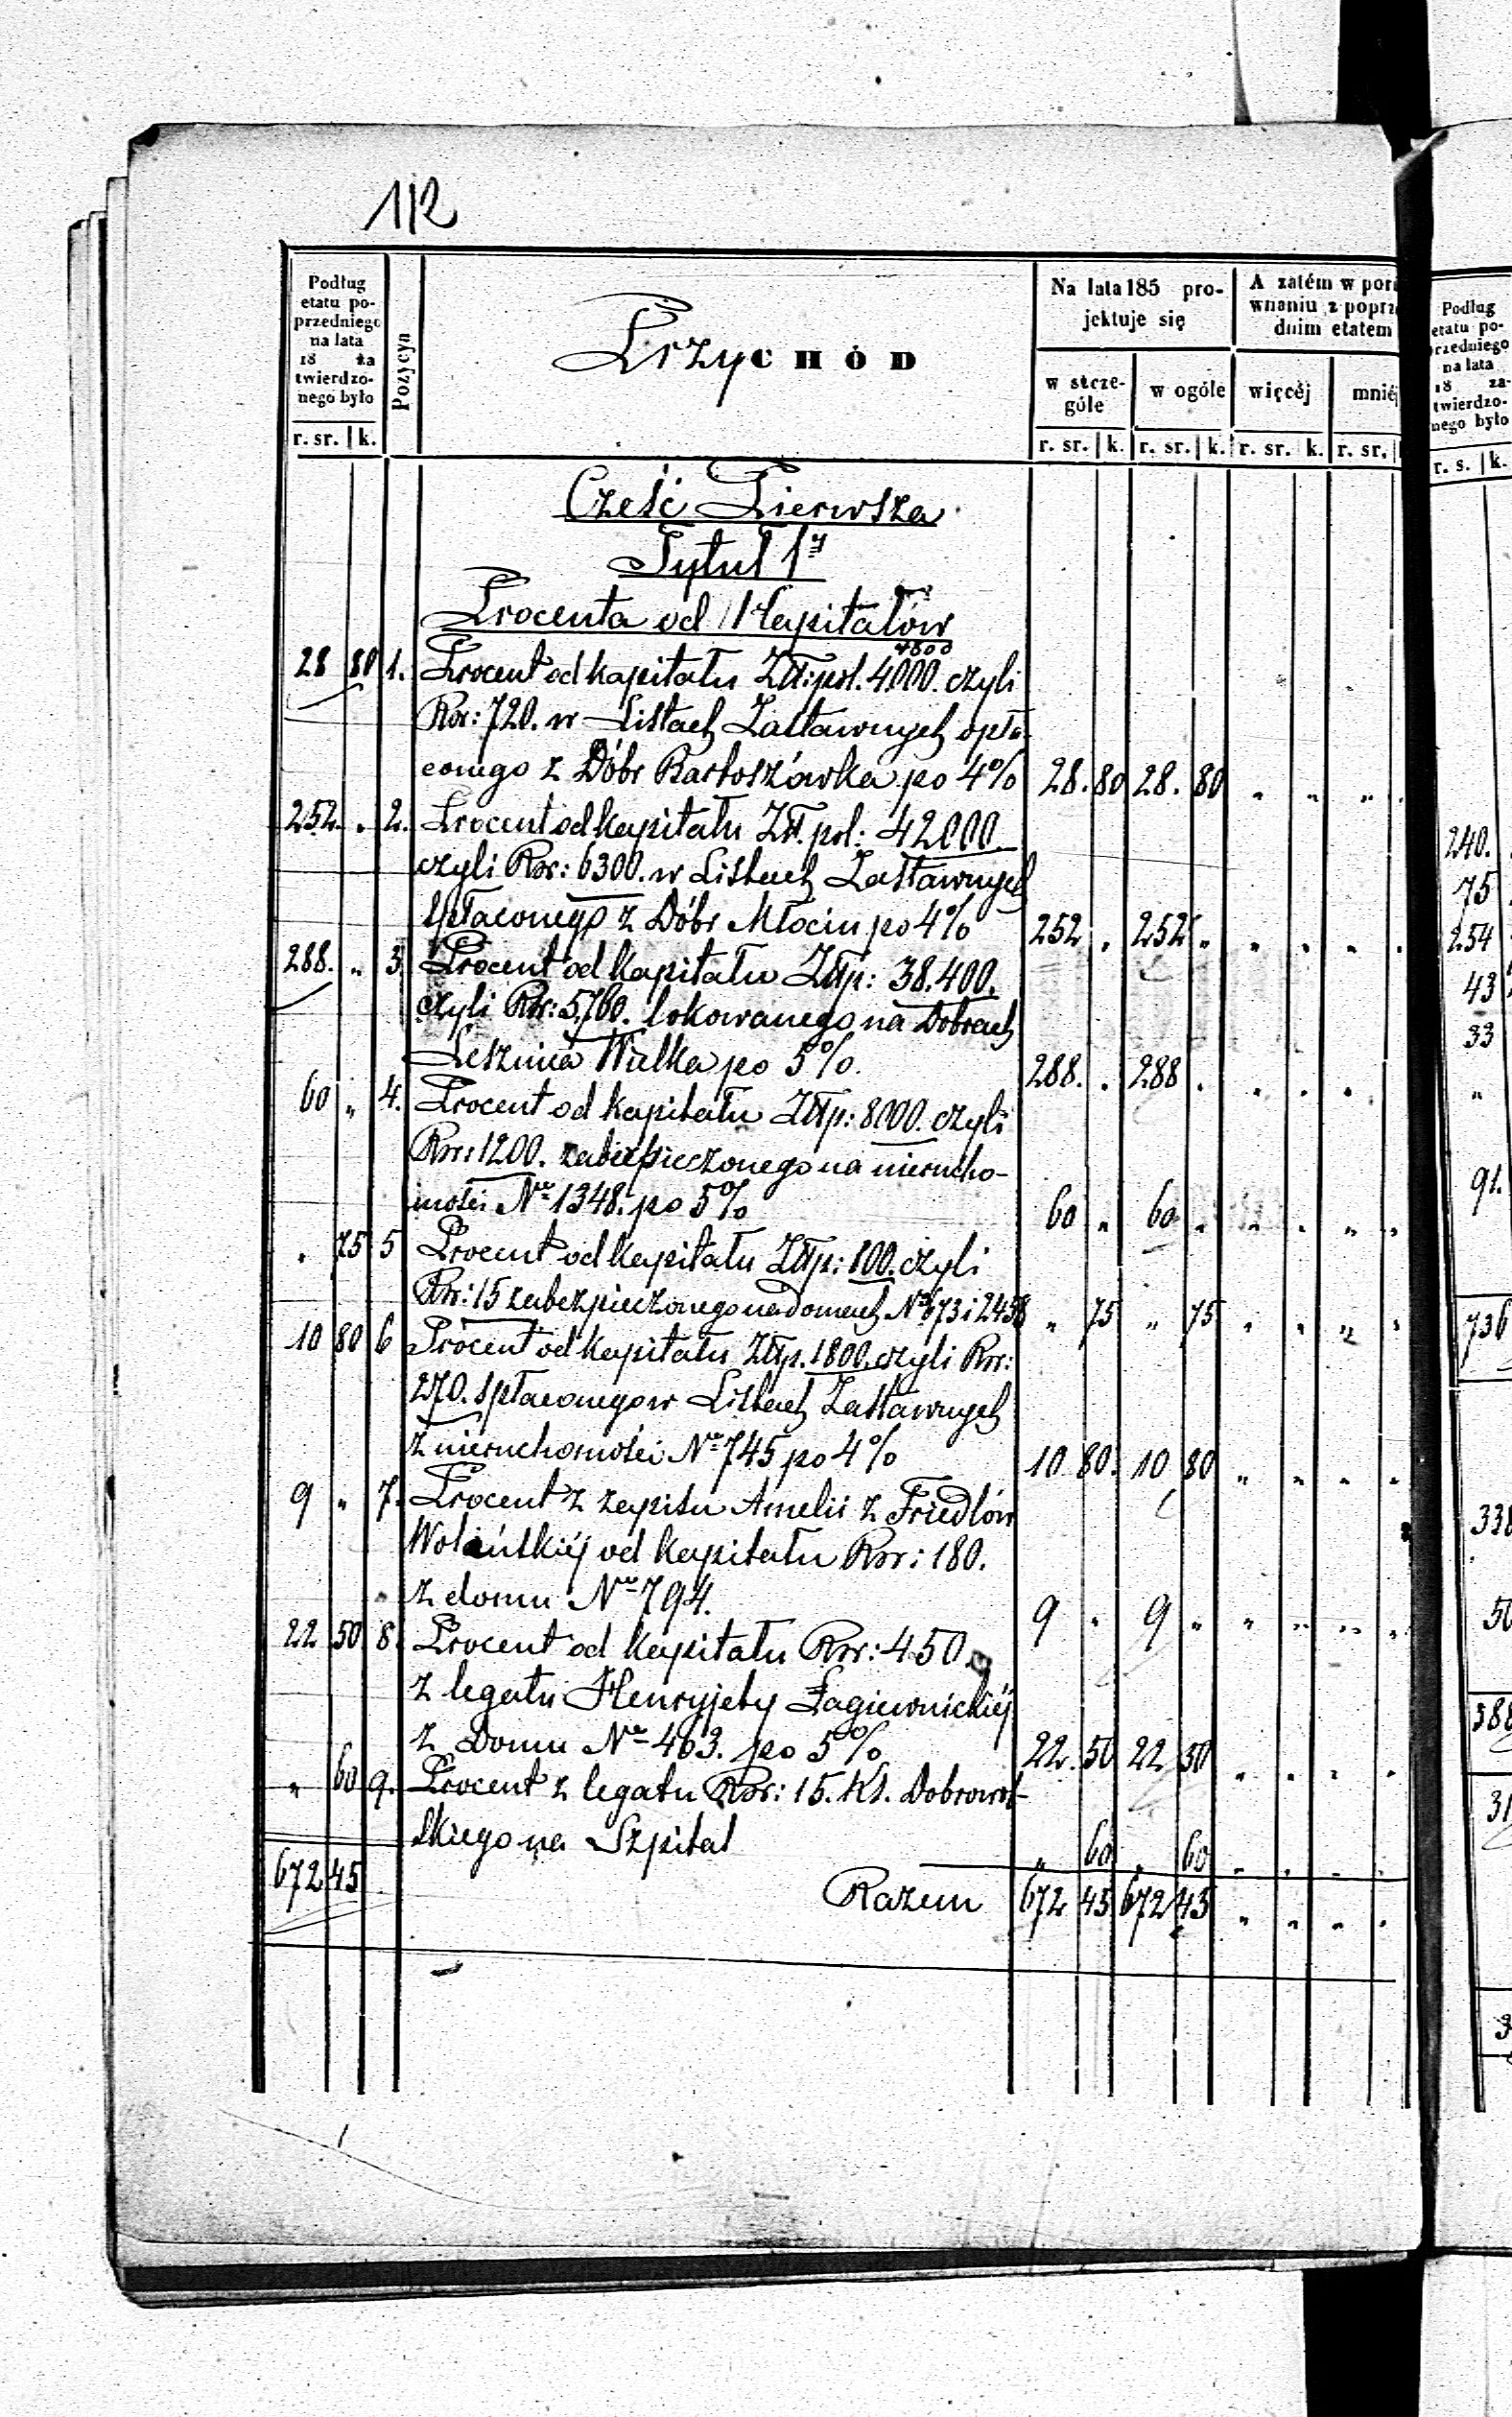 112
Podług etatu poprzedniego na lata 18 za twierdzonego było
r. sr. | k.
Pozycya
PrzyCHÓD
Na lata 185 projektuje się
w szczególe
w ogóle
r. sr. | k. | r. sr. | k.
A zatém w por
wnaniu z poprz
dnim etatem
więcéj
mniéj
r. sr. | k. | r. sr. |
Cześć Pierwsza
Tytuł 1y
Procenta od Kapitałów
4800
28 80 1. Procent od kapitału Złt: pol. 4000. czyli
Rsr: 720. w Listach Zastawnych spła-
conego z Dóbr Bartoszówka po 4% 28. 80 28. 80 " " " .
252. " 2. Procent od kapitału Złt. pol: 42000
czyli Rsr: 6300. w Listach Zastawnych
spłaconego z Dóbr Młocin po 4% 252 . 252 " " . " .
288. " 3 Procent od kapitału Złp: 38.400.
czyli Rsr: 5,760. lokowanego na Dobrach
Leszniea Wielka po 5%. 288. . 288 . . . .
60 " 4. Procent od kapitału Złtp: 8000. czyli
Rsr: 1200. zabezpieczonego na nierucho-
mości No 1348. po 5% 60 " 60 " " . " "
" 75 5 Procent od kapitału Złtp: 100. czyli
Rsr: 15 zabezpieczonego na domach No 673 i 2458 " 75 " 75 " " " .
10 80 6 Procent od kapitału Złtp. 1800. czyli Rsr:
270. spłaconego w Listach Zastawnych
z nieruchomości No 745 po 4% 10 80. 10 80 " " " "
9 " 7. Procent z zapisu Amelii z Friedlów
Wolańskiéj od kapitału Rsr: 180.
z domu No 794. 9 " 9 " " " " "
22 50 8. Procent od kapitału Rsr: 450
z legatu Henryjety Łagiewnickiéj
z Domu No 463. po 5% 22. 50 22 50 " . . .
" 60 9. Procent z legatu Rsr: 15. Ks. Dobrowol-
skiego na Szpital " 60 " 60 " . . .
672 45 Razem 672 45 672 45 " " " .
Podług
etatu po-
rzedniego
na lata
18 za-
twierdzo-
nego było
r. s. | k.
240.
75
254
43
33
"
91.
736
338
50
388
31